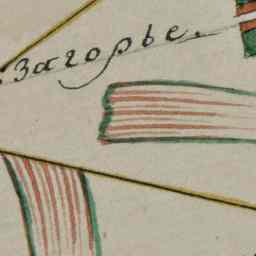 Загорье.